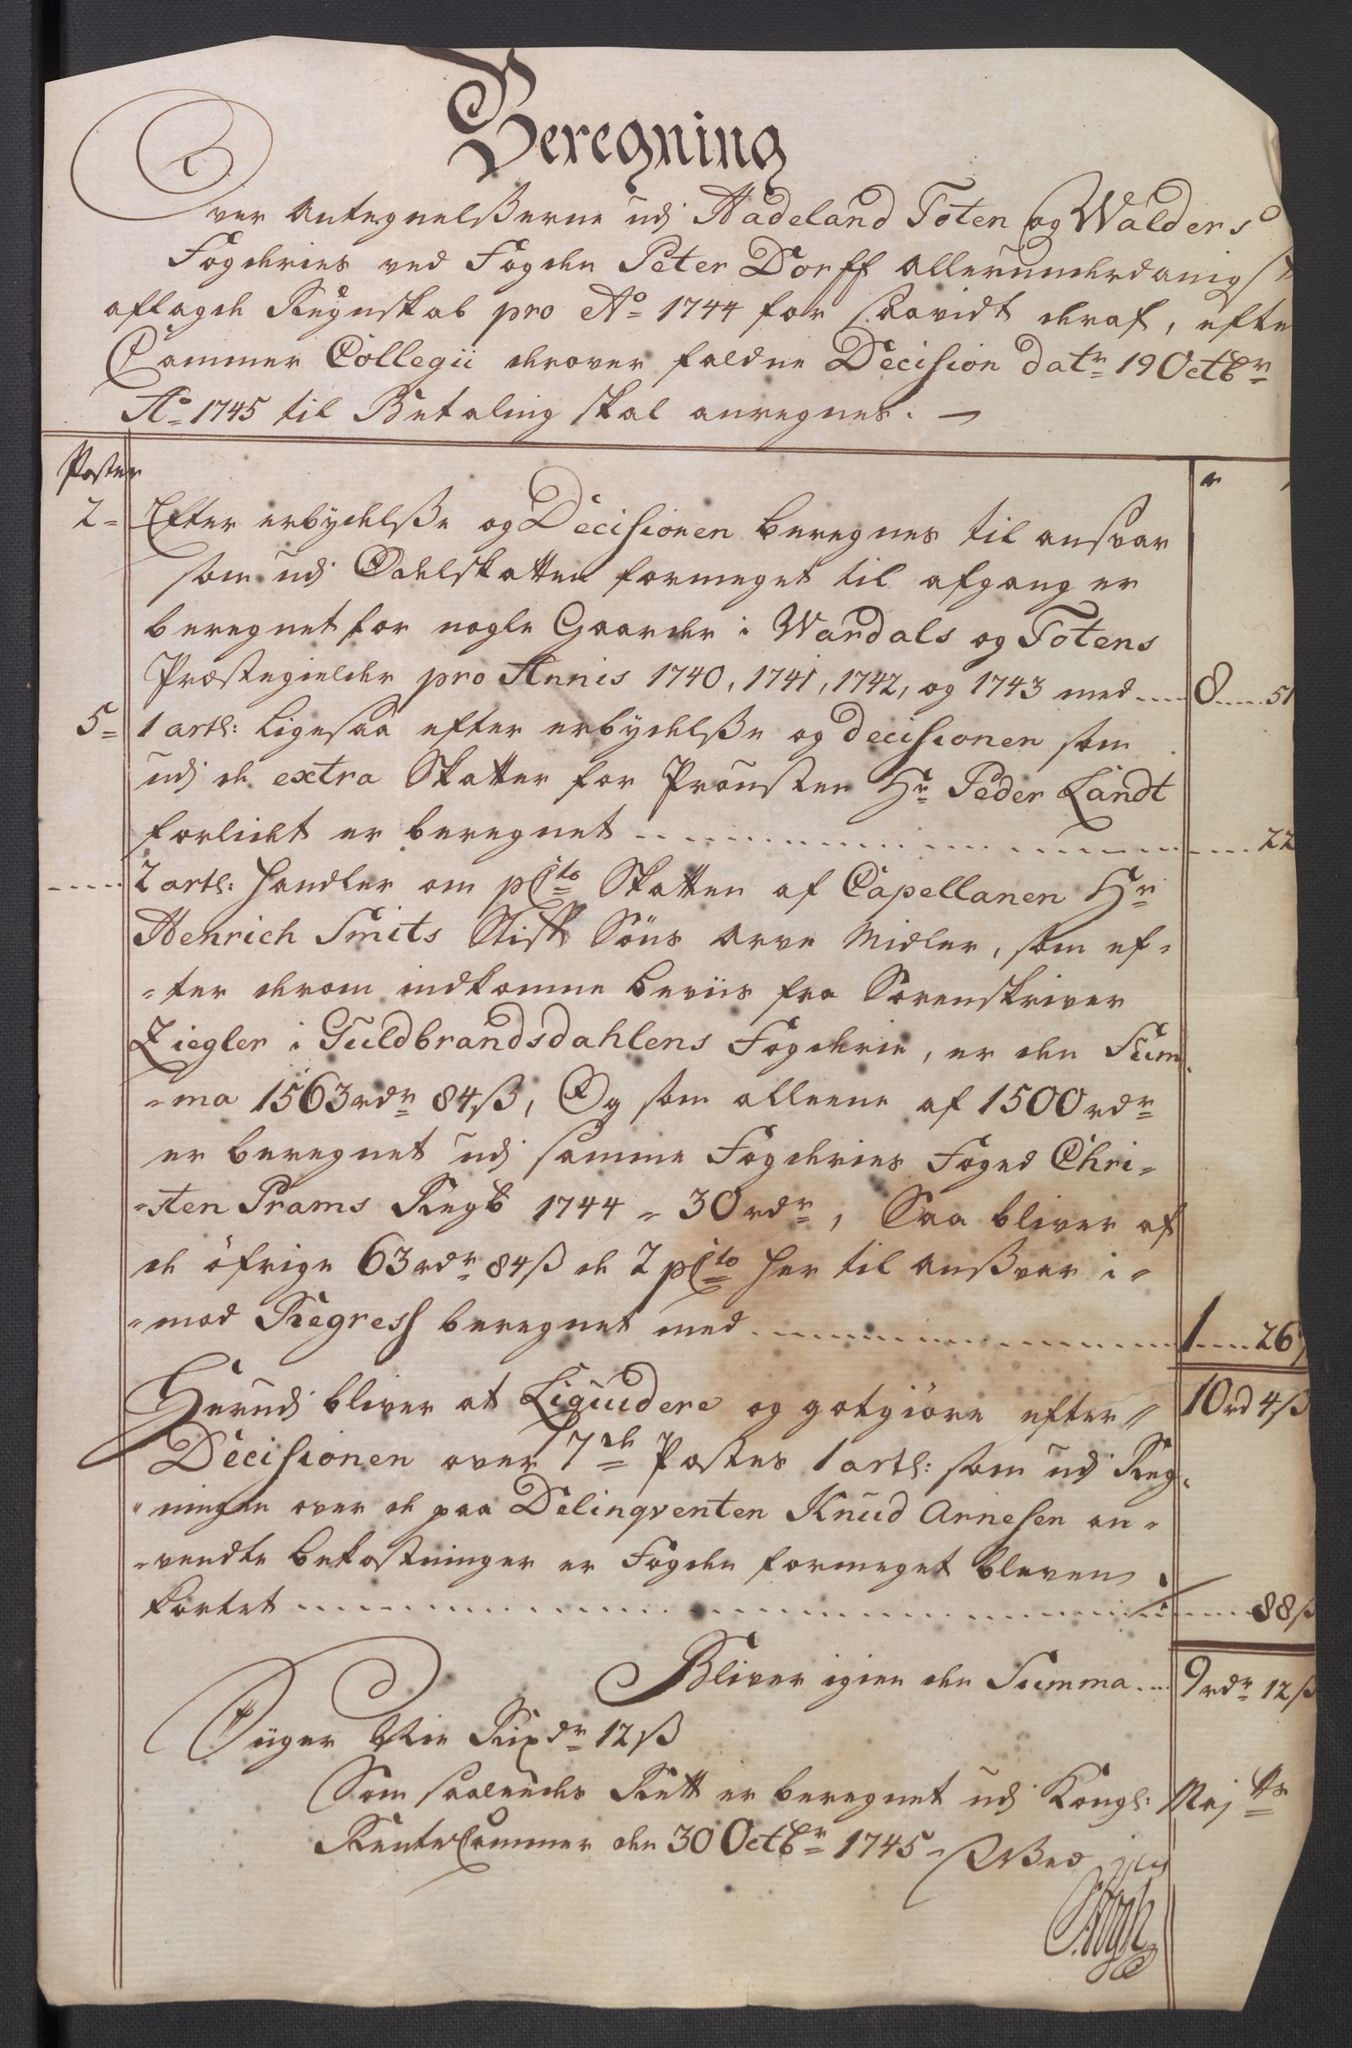 Beregning
Over Antegnelßerne udj Hadeland Toten og Walders
Fogderies ved Fogden Peter Dorff allerunderdanigst
aflagde Regnskab pro Ao 1744 for saavidt deraf, efter
Cammer Collegii derover faldne Decision datr 19 Octbr
Ao 1745 til Betaling skal anregnes. —
Poster
2= Efter erbydelße og Decisionen beregnes til ansvar
som udj Odelskatten formeget til afgang er
beregnet for nogle Gaarder i Wardals og Totens
Præstegielder pro Annis 1740, 1741, 1742, og 1743 med .... 8 .... 51
5= 1 artl: ligesaa efter erbydelße og decisionen som
udj de extra Skatter for Prousten Hr Peder Landt
forlidet er beregnet .... 22
2 artl: handler om pCto Skatten af Capellanen Hr
Henrich Smits Stiff Söns arve Midler, som ef-
-ter derom indkomne beviis fra Sorenskriver
Ziegler i Guldbrandsdahlens Fogderie, er den Sum-
-ma 1563 rdr 84 ß, Og som alleene af 1500 rdr
er beregnet udj samme Fogderies Foged Chri-
-sten Prams Regsb 1744 = 30 rdr, Saa bliver af
de öfrige 63 rdr 84 ß de 2 pCto her til Anßvar i-
-mod Regress beregnet med .... 1 .... 26
Herudj bliver at Liquidere og gotgiöre efter 10 rd 4 ß
Decisionen over 7de Postes 1 artl: som udj Reg-
-ningen over de paa Delinqventen Knud Arnesen an-
-vendte bekostninger er Fogden formeget bleven
kortet .... 88 ß
Bliver igien den Summa .... 9 rdr 12 ß
Siiger Nie Rixdr 12 ß
Som saaledes Rett er beregnet udj Kongl: Maj ts
Rente Cammer den 30 Octbr 1745